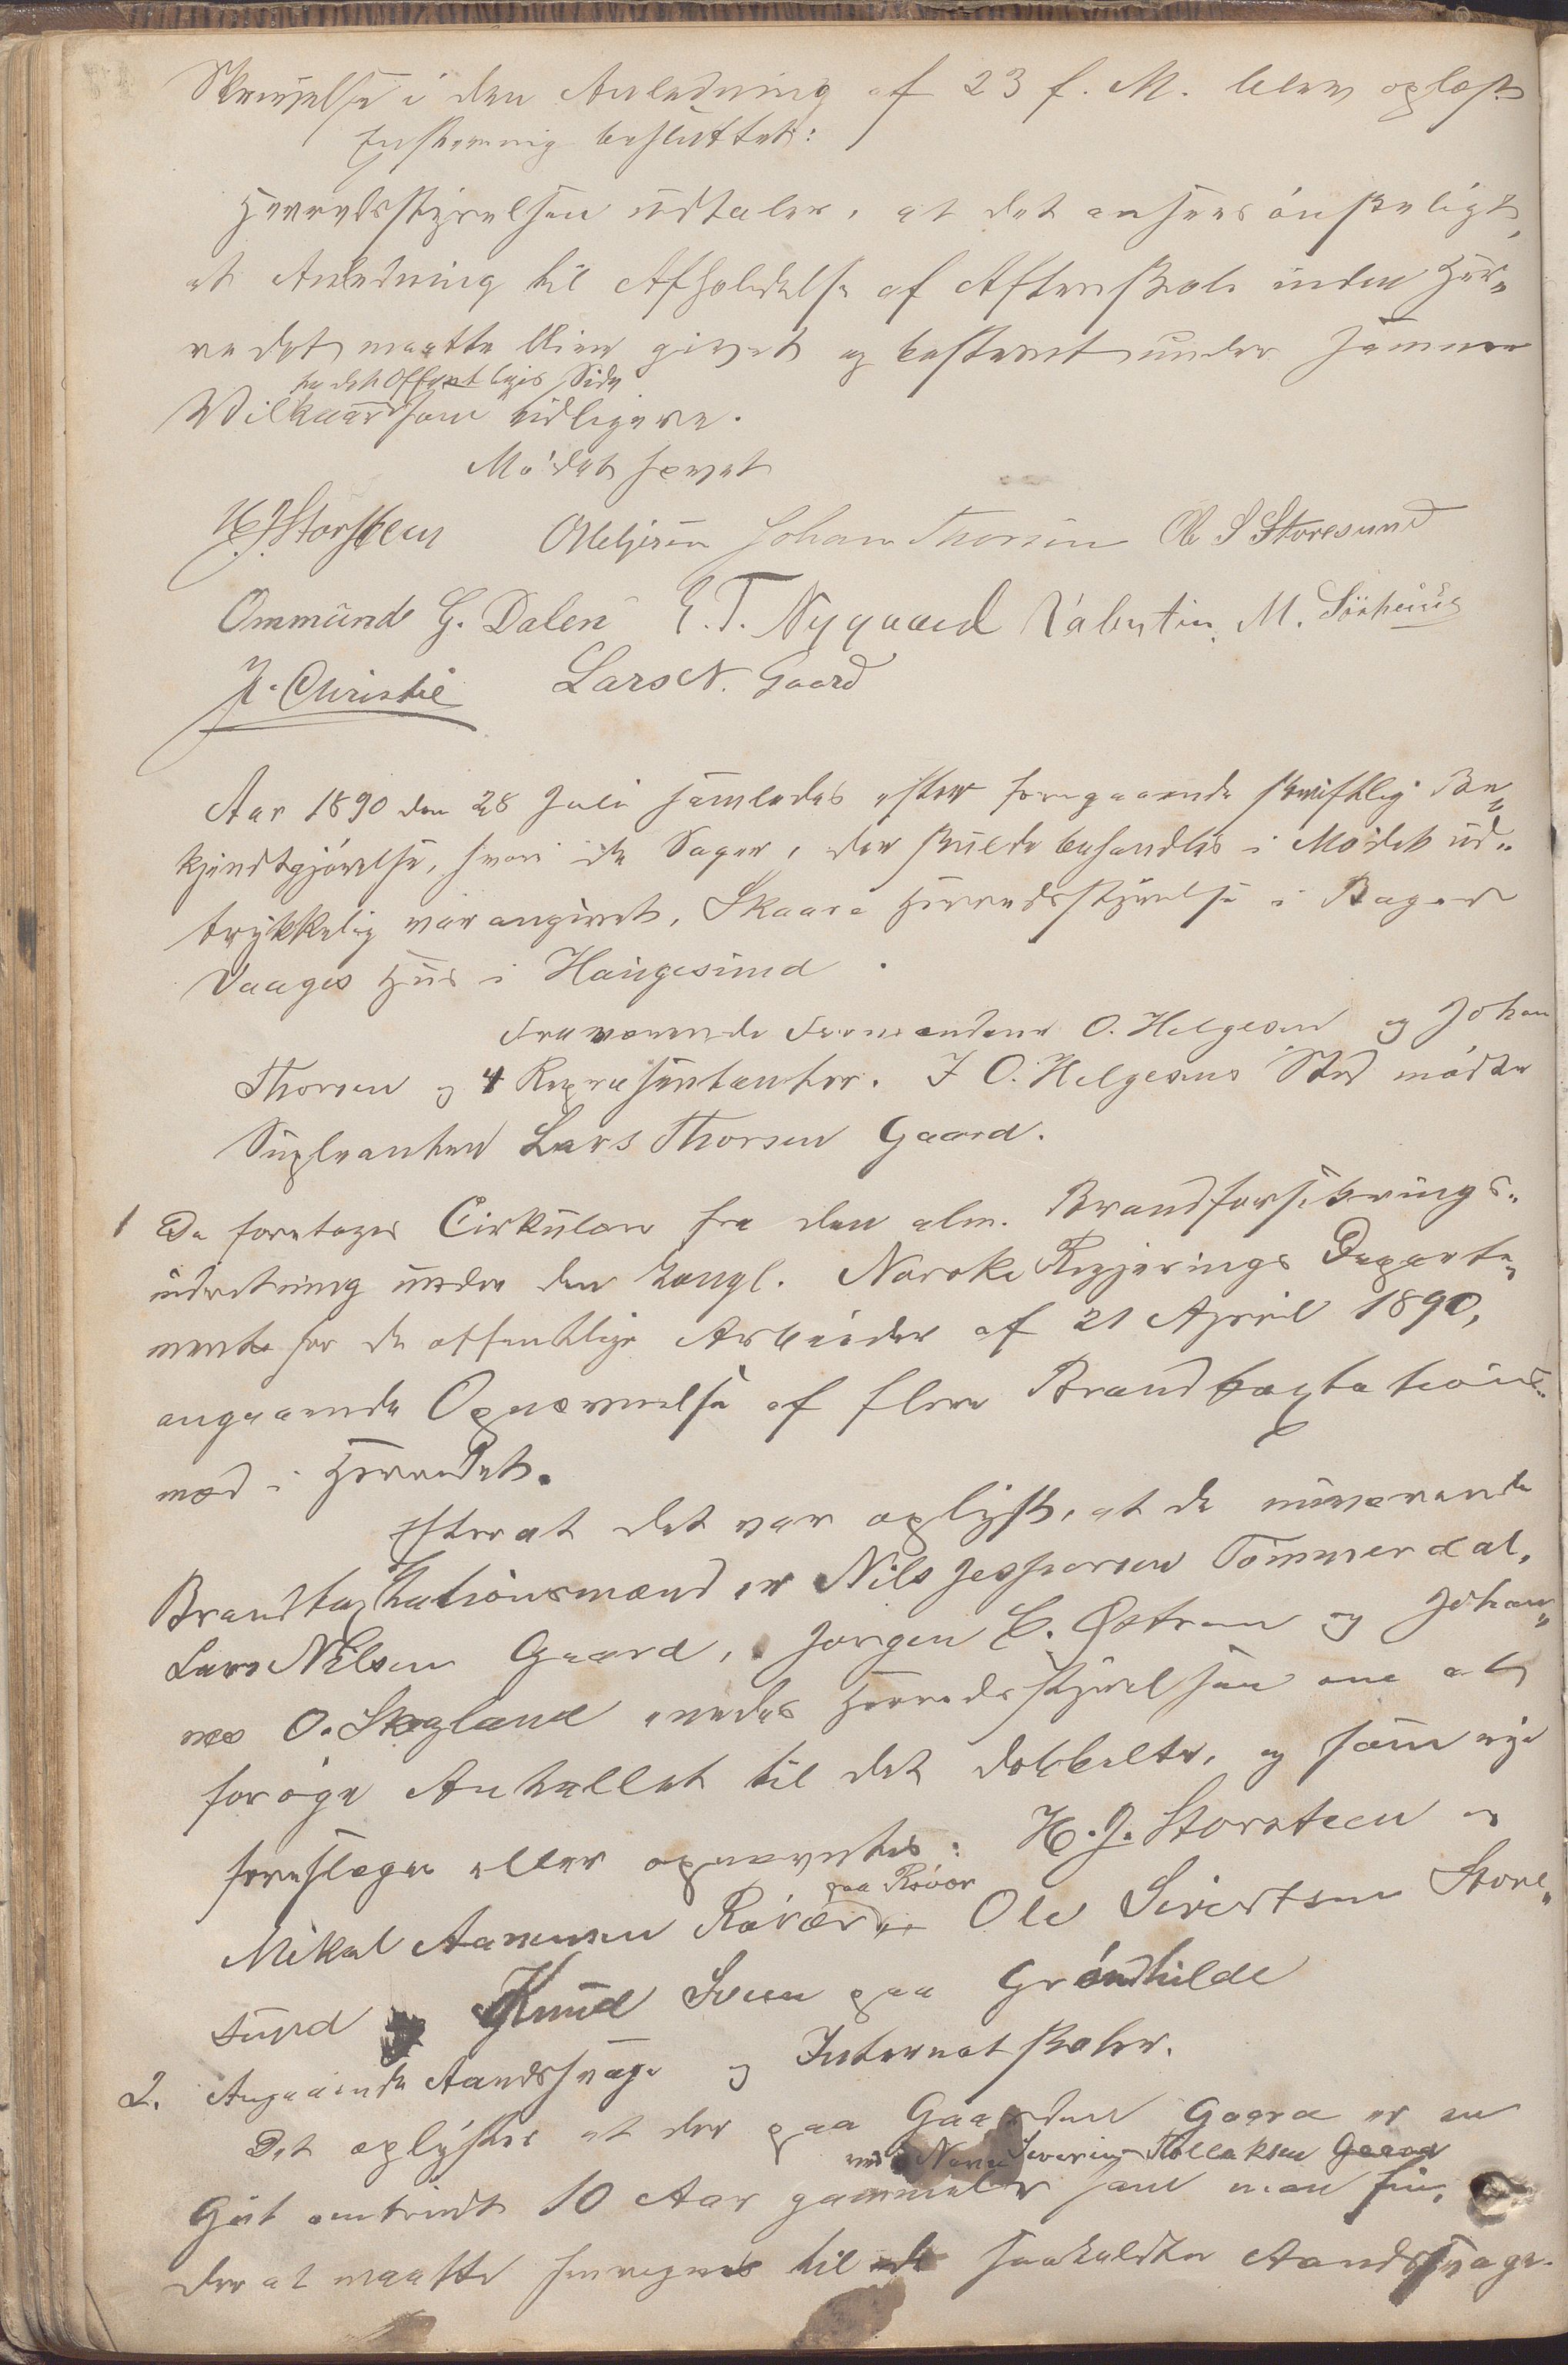 Skrivelse i den Anledning af 23 f. M. blev oplæst
Enstemmig besluttet:
Herredsstyrelsen udtaler, at det ansees ønskeligt,
at Anledning til Afholdelse af Aftenskole inden Her„
redet maatte blive givet og bestemt under samme
fra det Offentliges Side
Vilkaar som tidligere.
Mødet hævet
H. J. Storsteen O Helgesen Johan Thorsen Ole S Storesund
Ommund G. Dalen E. T. Nygaard Valentin M. Sörhuus
J. Christie Lars N. Gaard
Aar 1890 den 28 Juli samledes efter foregaaende skriftlig Be„
kjendtgjørelse, hvori de Sager, der skulde behandles i Mødet ud„
trykkelig var angivet, Skaare Herredsstyrelse i Bager
Vaages Hus i Haugesund.
Fraværende Formændene O. Helgesen og Johan
Thorsen og 4 Repræsentanter. I O. Helgesens Sted mødte
Supleanten Lars Thorsen Gaard.
1 De foretoges Cirkulære fra den alm. Brandforsikrings„
indretning under den kongl. Norske Regjerings Departe„
mente for de offentlige Arbeider af 21 April 1890,
angaaende Opnævnelse af flere Brandtaxtations„
mæd i Herredet.
Efterat det var oplyst, at de nuværende
Brandtaxtationsmænd er Nils Jespersen Tømmerdal,
Lars Nilsen Gaard, Jørgen C. Østrem og Johan„
nes O. Skogland enedes Herredsstyrelsen om at
forøge Antallet til det dobbelte, og som nye
foreslages eller opnævntes: H. J. Storsteen og
paa Røvær
Mikal Aamunsen Røvær Ole Sivertsen Store„
sund Knud Sveen paa Grønhilde
2. Angaaende Aandssvage og Internatskoler.
Det oplystes at der paa Gaarden Gaard er en
ved Navn Severin Tollaksen Gaard
Gut omtrindt 10 Aar gammel som man fin„
der at maatte henregnes til de saakaldte Aandssvage.